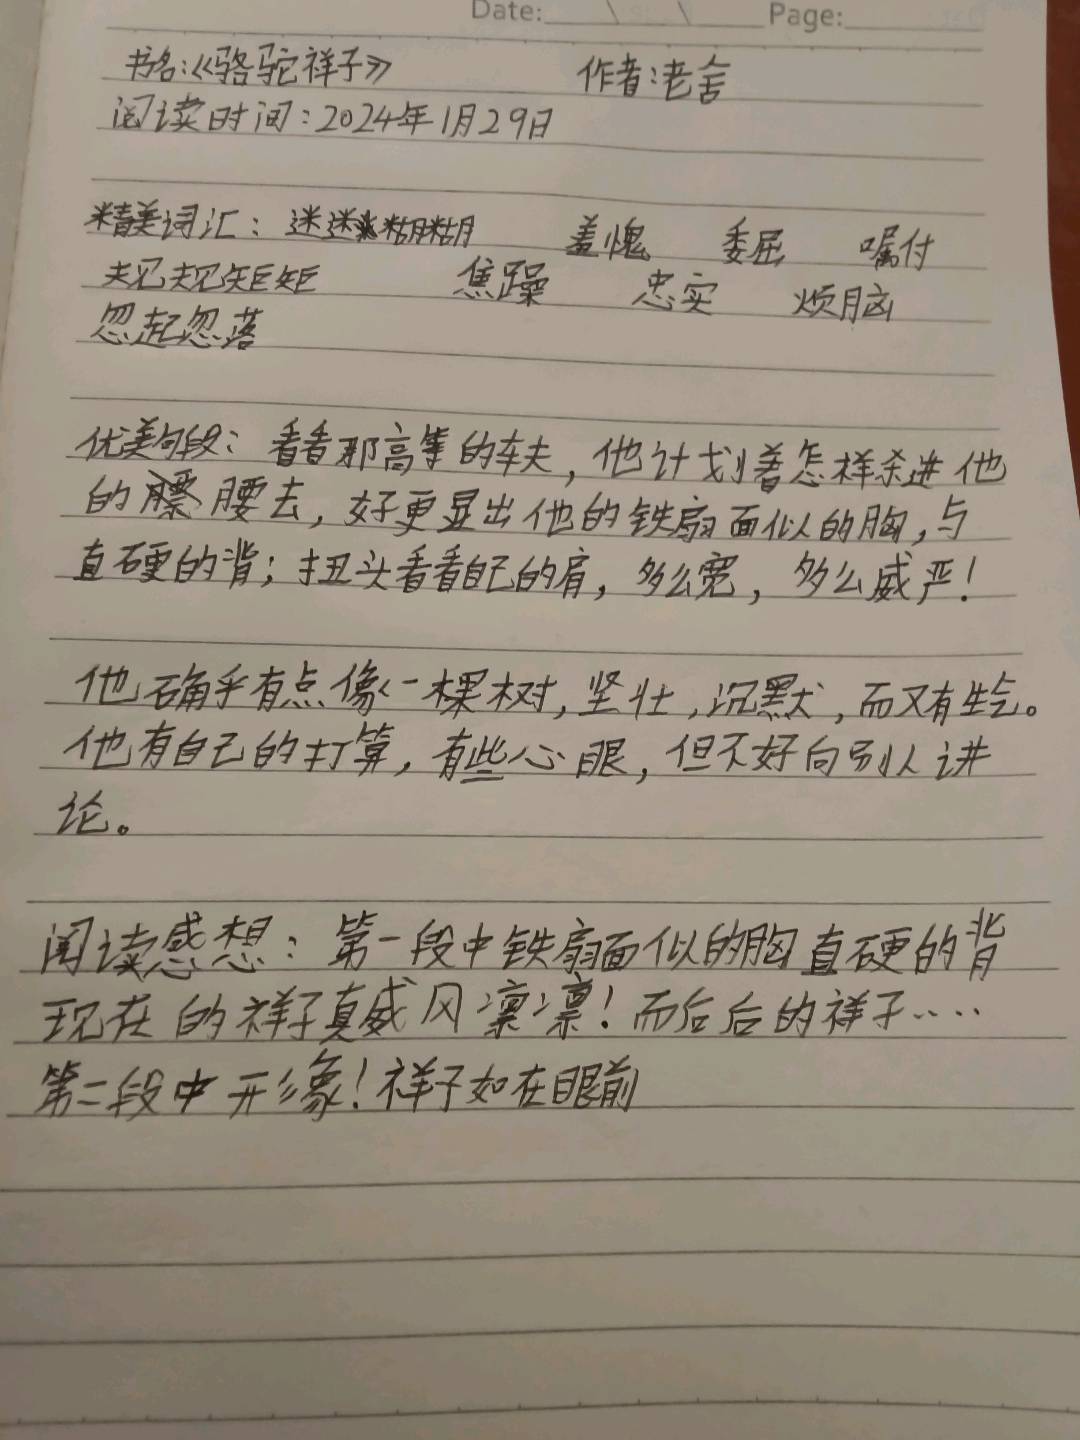 Date: \ \ Page:
书名:《骆驼祥子》 作者:老舍
阅读时间:2024年1月29日
精美词汇:迷迷糊糊 羞愧 委屈 嘱付
规规矩矩 焦躁 忠实 烦脑
忽起忽落
优美句段:看看那高等的车夫,他计划着怎样杀进他
的腰去,好更显出他的铁扇面似的胸,与
直硬的背;扭头看看自己的肩,多么宽,多么威严!
他确乎有点像一棵树,坚壮,沉默,而又有生气。
他有自己的打算,有些心眼,但不好向别人讲
论。
阅读感想:第一段中铁扇面似的胸直硬的背
现在的祥子真威风凛凛!而后后的祥子····
第二段中形象!祥子如在眼前